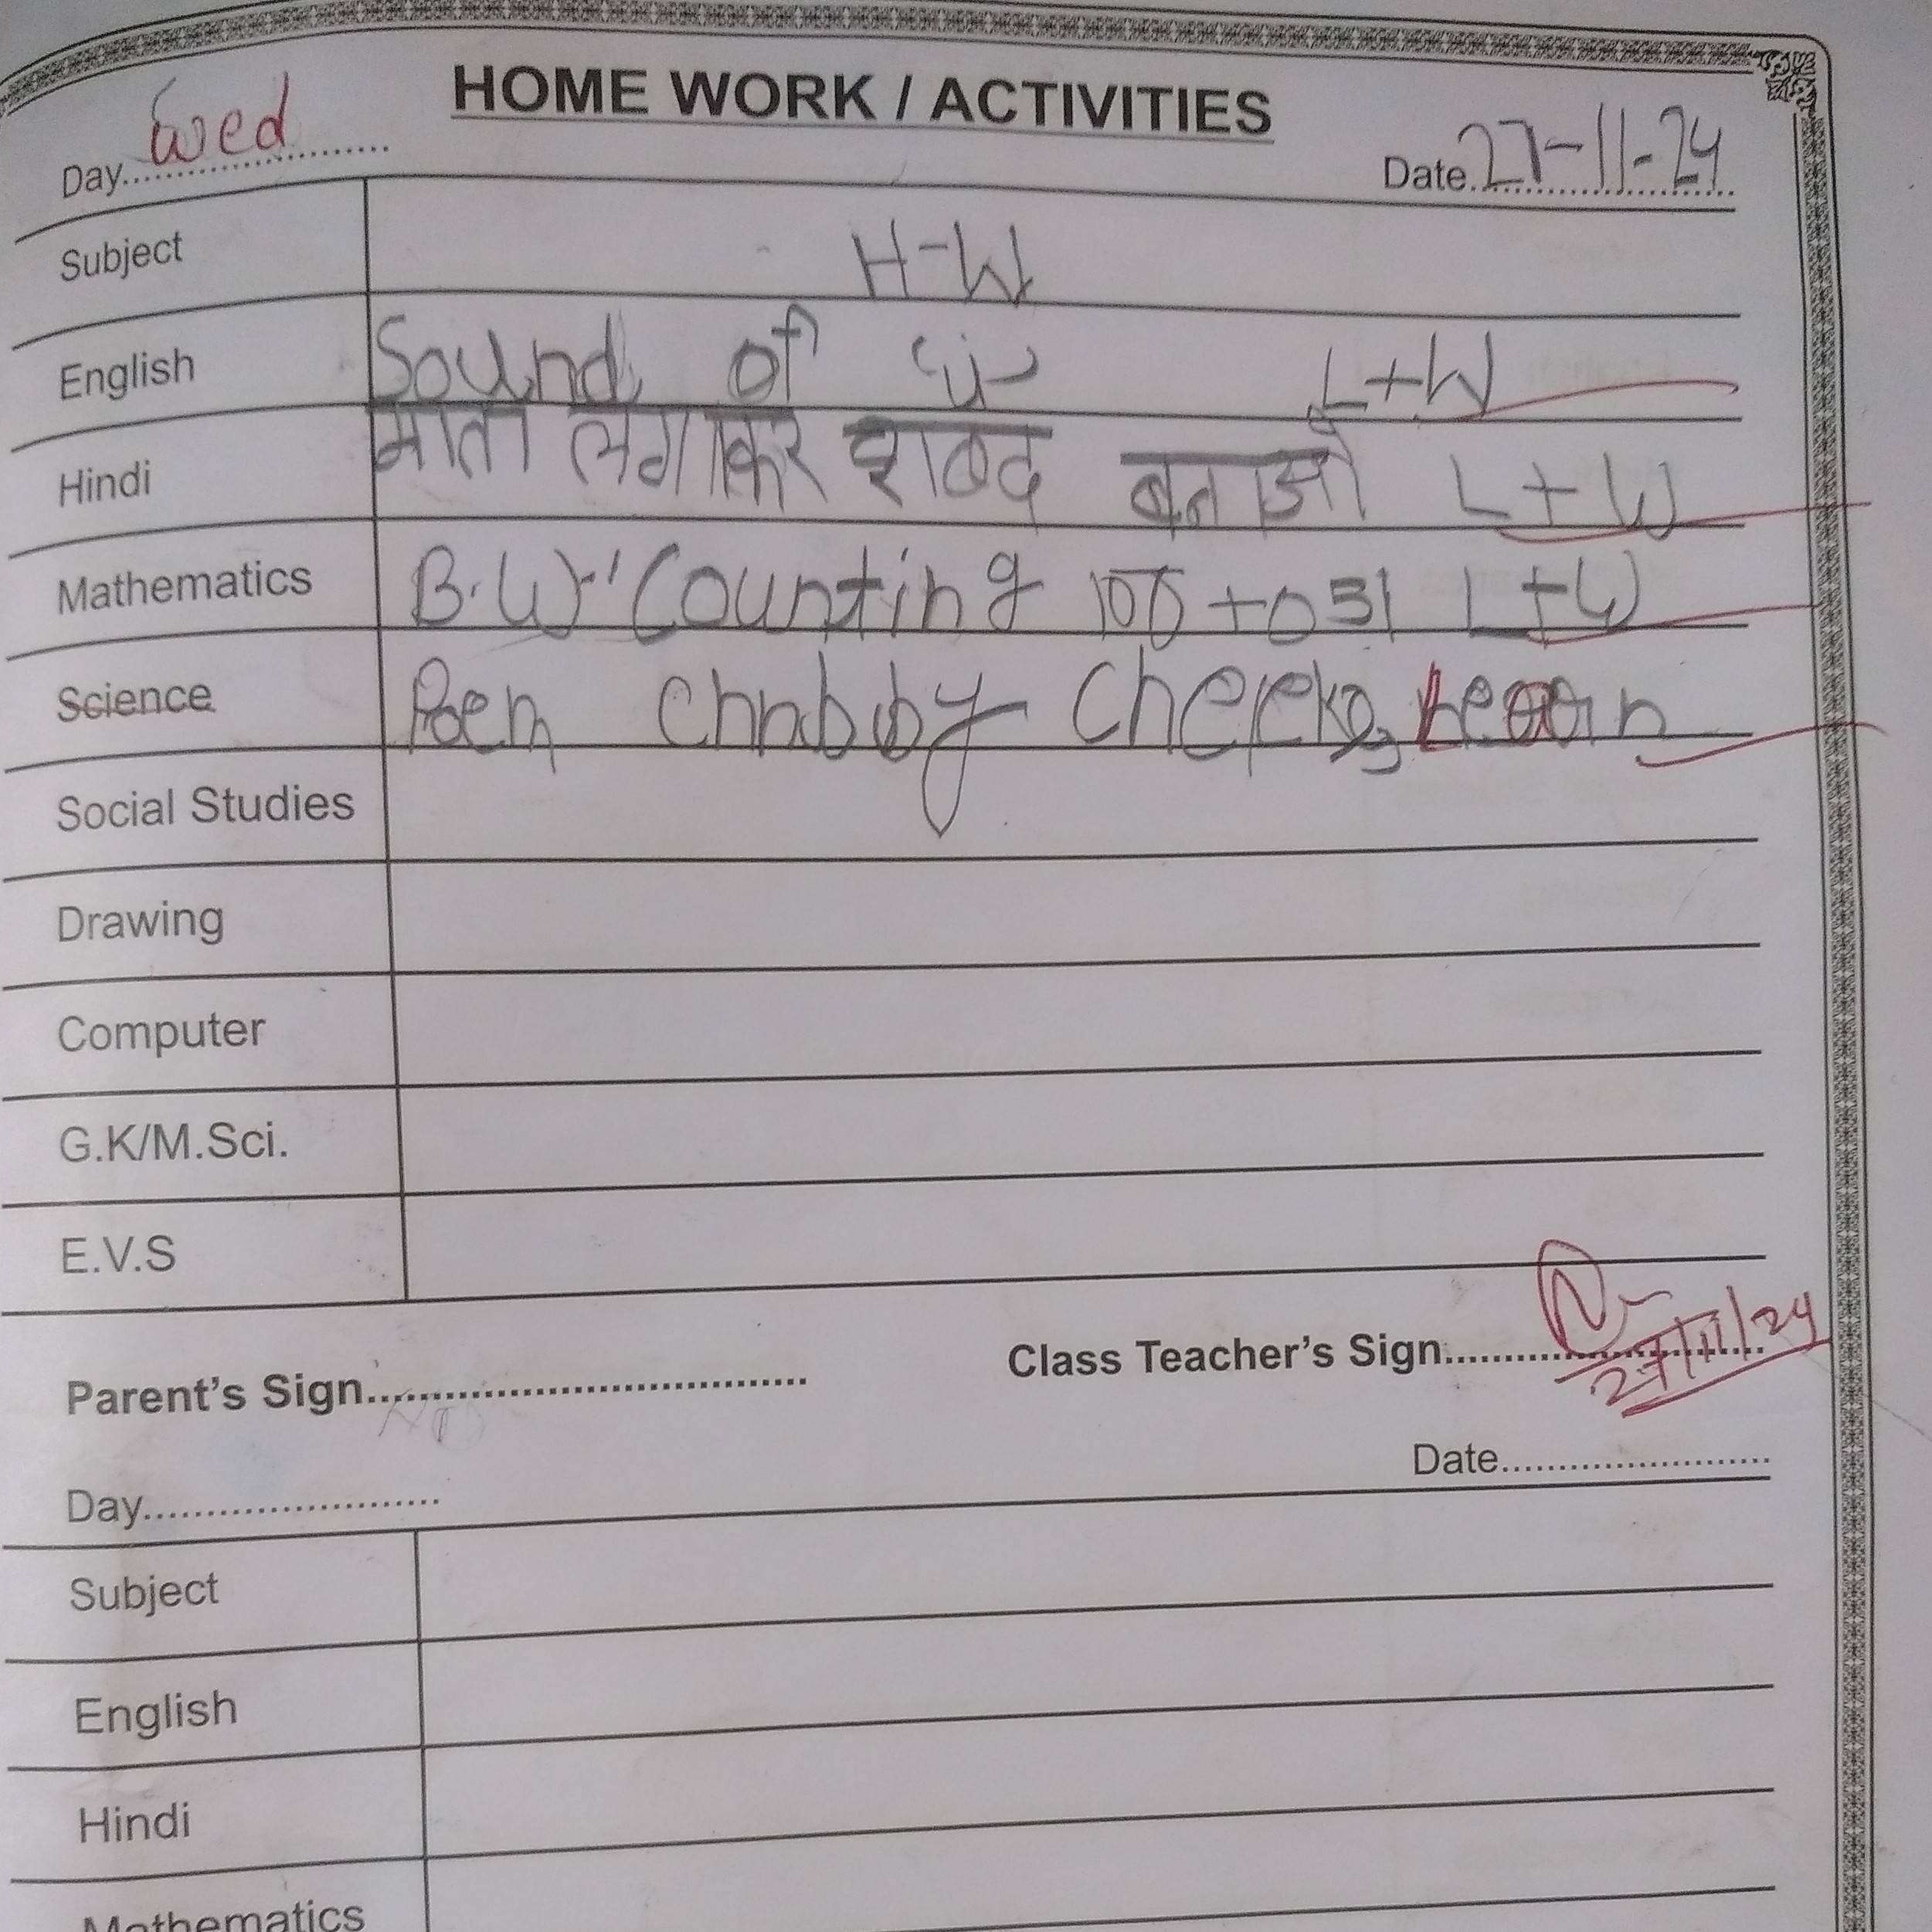 HOME WORK / ACTIVITIES
Day.......... Wed
Date. 27-11-24
Subject H-W
English Sound of "u" L+W
Hindi माता लगाकर शबद बनाओ L+W
Mathematics B.W "Counting 100 to 51 L+W
Science Poem Chubby Cheeks, Learn
Social Studies
Drawing
Computer
G.K/M.Sci.
E.V.S
Parent's Sign..........
Class Teacher's Sign.......... 27/11/24
Day..........
Date..........
Subject
English
Hindi
Mathematics